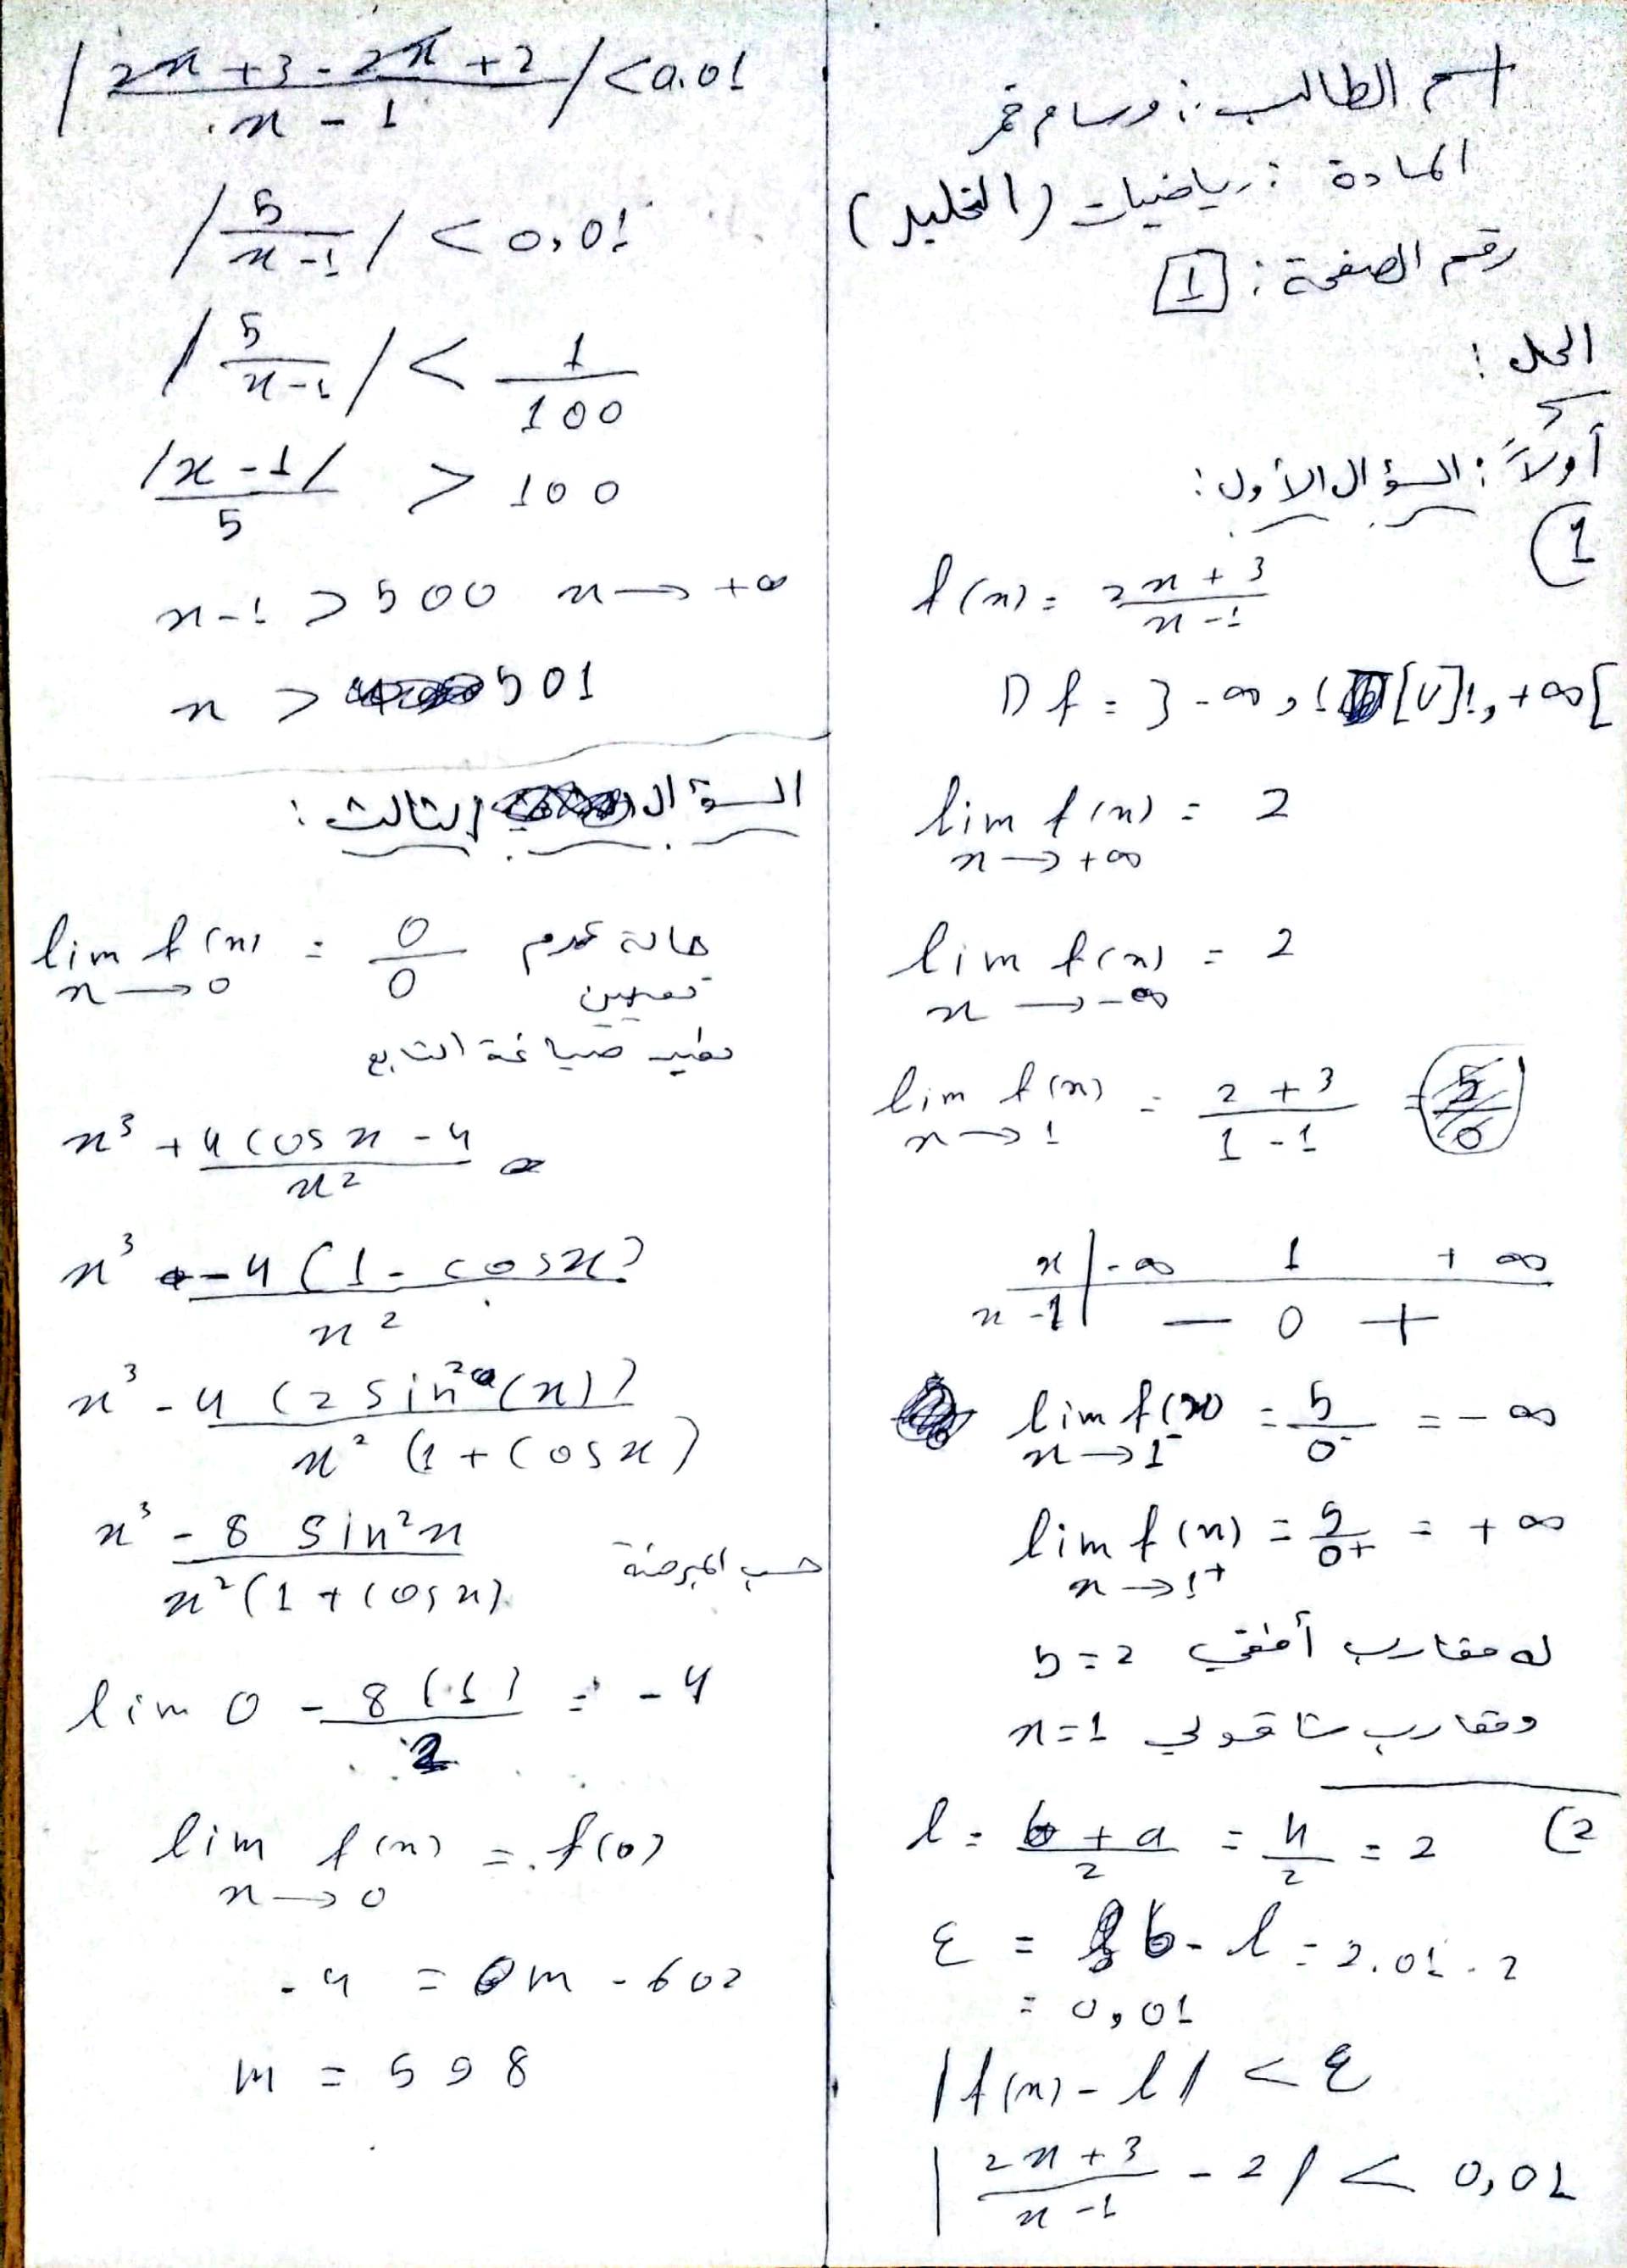 اسم الطالب: وسام قمر
المادة: رياضيات (التحليل)
رقم الصفحة: 1
الحل:
أولاً: السؤال الأول:
1
f(x) = (2x + 3)/(x - 1)
Df = ]-∞, 1[U]1, +∞[
lim f(x) = 2
x → +∞
lim f(x) = 2
x → -∞
lim f(x) = (2 + 3)/(1 - 1)
x → 1
x | -∞ 1 +∞
x - 1 | - 0 +
lim f(x) = 5/0- = -∞
x → 1-
lim f(x) = 5/0+ = +∞
x → 1+
له مقارب أفقي y = 2
ومقارب شاقولي x = 1
2)
l = (b + a)/2 = 4/2 = 2
ε = b - l = 2.01 - 2
= 0,01
|f(x) - l| < ε
|(2x + 3)/(x - 1) - 2| < 0,01
|(2x + 3 - 2x + 2)/(x - 1)| < 0.01
|5/(x - 1)| < 0,01
|5/(x - 1)| < 1/100
|x - 1|/5 > 100
x - 1 > 500 x → +∞
x > 501
السؤال الثالث:
lim f(x) = 0/0 حالة عدم
x → 0 تعيين
نغير صياغة التابع
x³ + (4 cos x - 4)/x²
x³ - 4(1 - cos x)/x²
x³ - 4(2 sin²(x))/(x²(1 + cos x))
x³ - 8 sin²x/(x²(1 + cos x)) حسب المبرهنة
lim 0 - 8(1)/2 = -4
lim f(x) = f(0)
x → 0
-4 = m - 602
m = 598